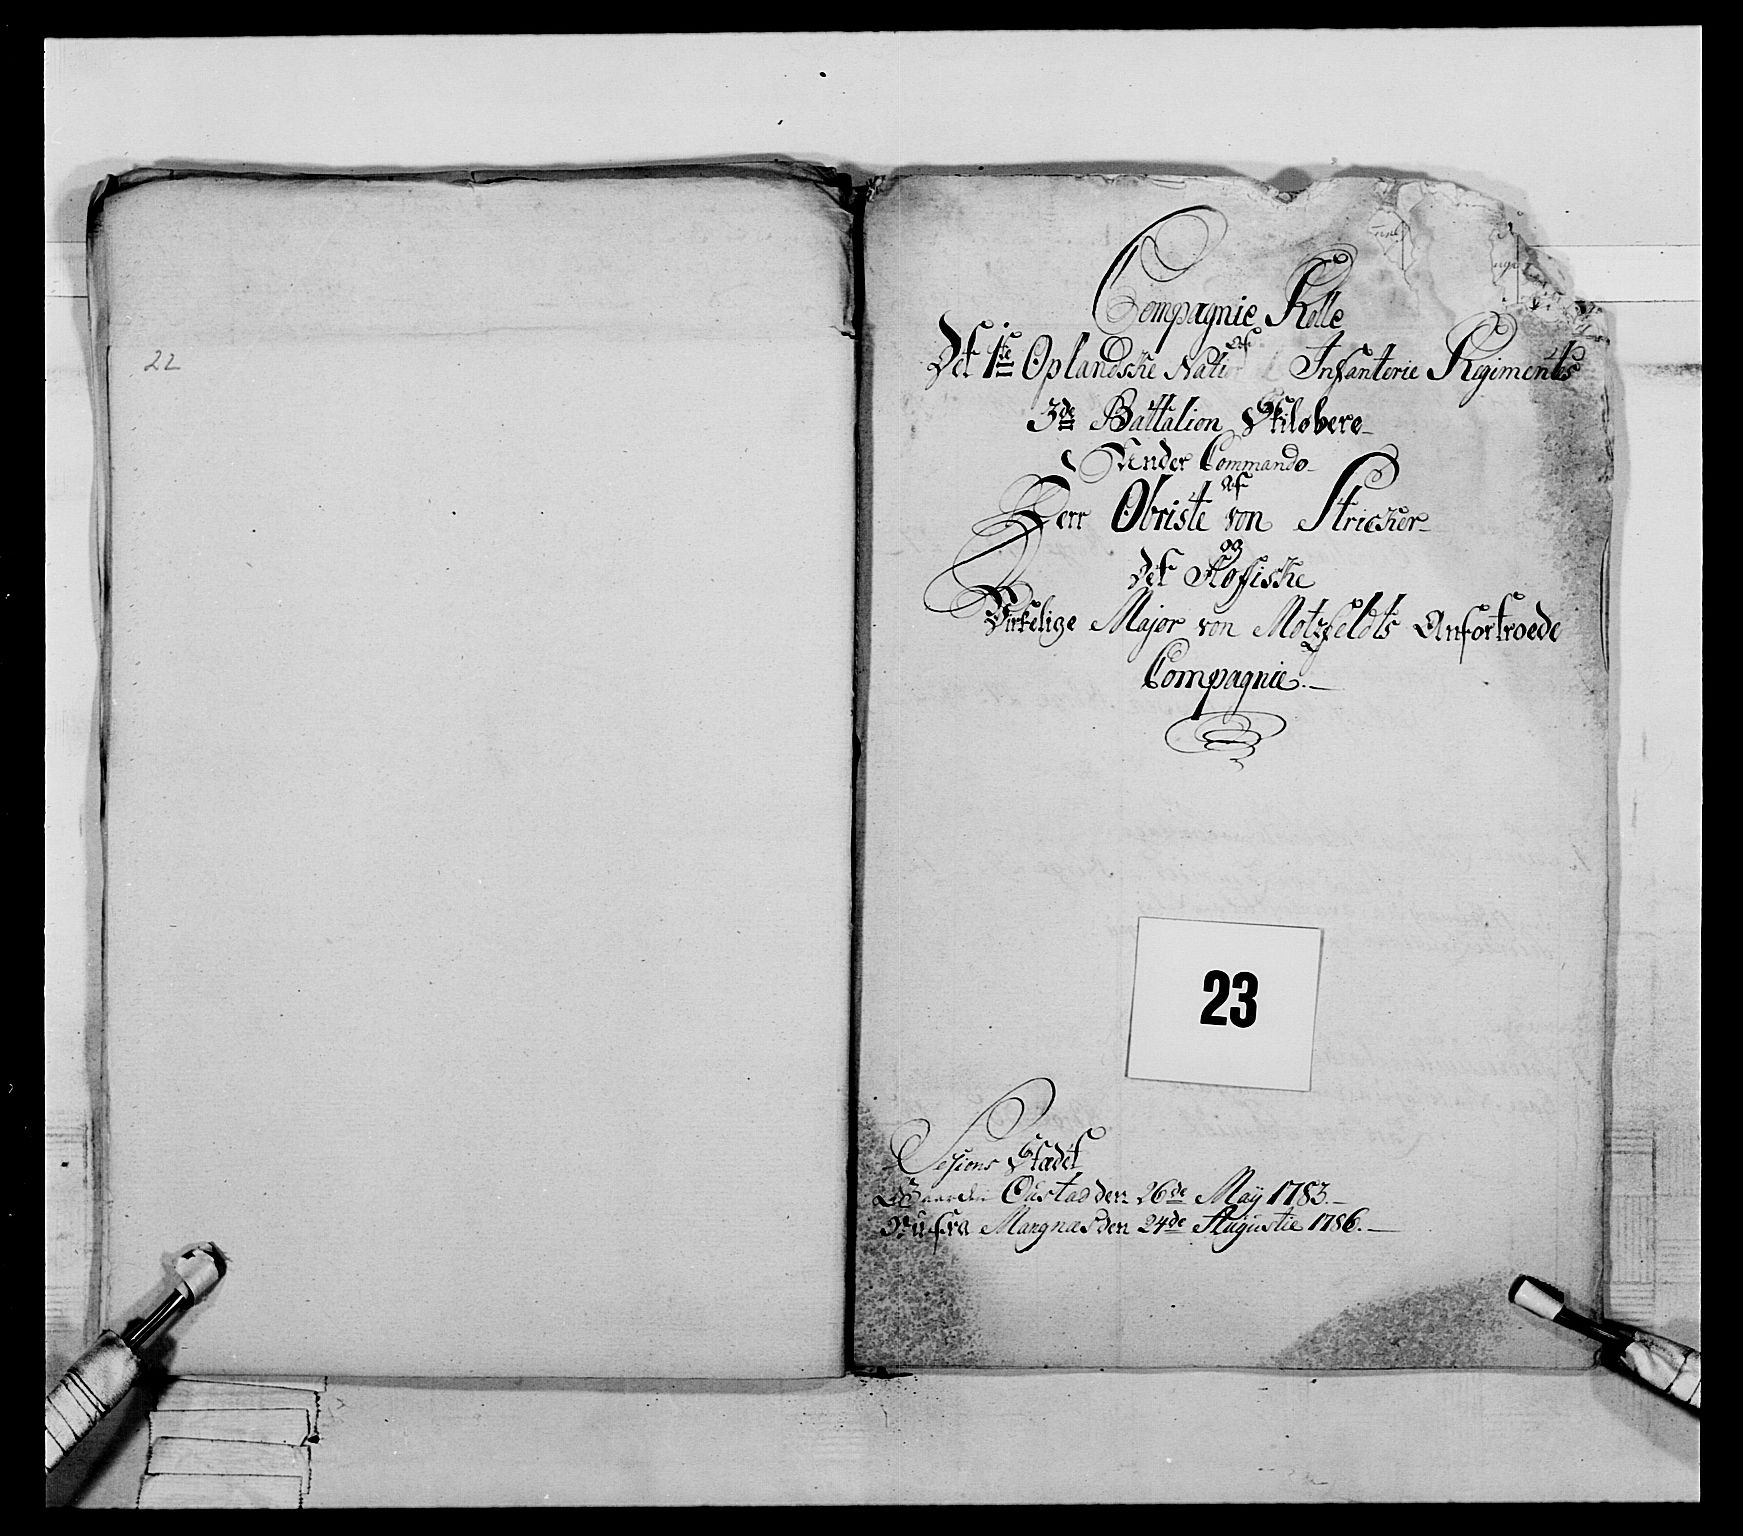 22
Compagnie Rolle
Af
Det 1te Oplandske Nati Infanterie Regiments
3de Battalion Skiløbere
Under Commando
af
Herr Obriste von Stricker
og
Det
Virkelige Major von Motzfeldts Anfortroede
Compagnie.
23
Sesions Stædet
Gaarden Oustad den 26de May 1783.
Mangnæs den 24de Augustie 1786.